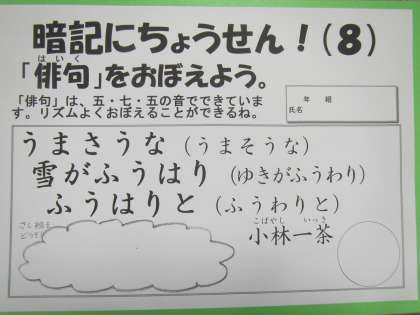 暗記にちょうせん！（８）
はいく
「俳句」をおぼえよう。
「俳句」は、五・七・五の音でできていま
す。リズムよくおぼえることができるね。
年 組
氏名
うまさうな（うまそうな）
雪がふうはり（ゆきがふうわり）
ふうはりと（ふうわりと）
こばやし いっさ
小林一茶